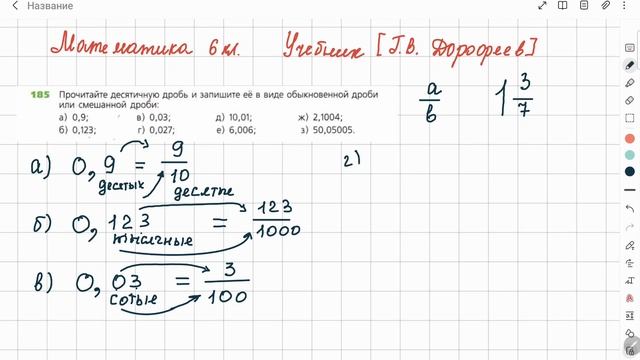 Название
Математика 6 кл. Учебник [Г.В. Дорофеев]
185 Прочитайте десятичную дробь и запишите её в виде обыкновенной дроби
или смешанной дроби:
а) 0,9; в) 0,03; д) 10,01; ж) 2,1004;
б) 0,123; г) 0,027; е) 6,006; з) 50,05005.
a/b 1 3/7
а) 0,9 = 9/10
десятых десятые
г)
б) 0,123 = 123/1000
тысячные
в) 0,03 = 3/100
сотые